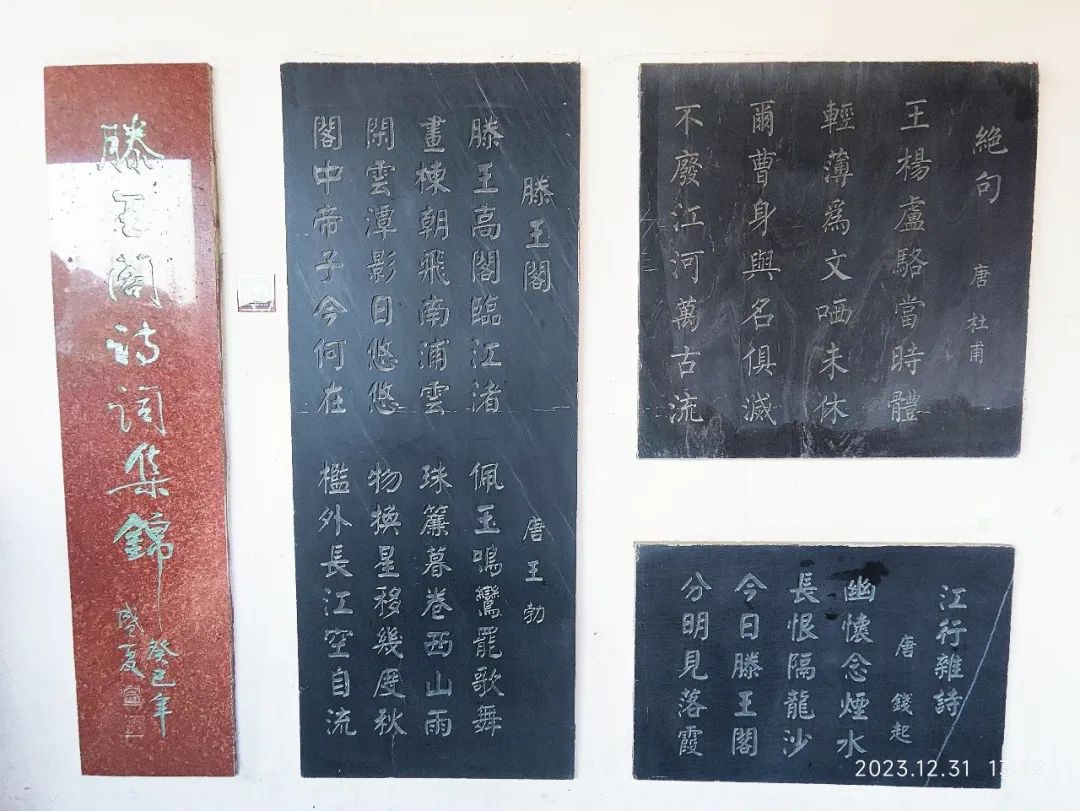 滕王阁诗词集錦
癸巳年
盛夏
滕王閣 唐 王勃
滕王高閣臨江渚 佩玉鳴鸞罷歌舞
畫棟朝飛南浦雲 珠簾暮卷西山雨
閑雲潭影日悠悠 物換星移幾度秋
閣中帝子今何在 檻外長江空自流
絕句 唐 杜甫
王楊盧駱當時體
輕薄為文哂未休
爾曹身與名俱滅
不廢江河萬古流
江行雜詩
唐 錢起
幽懷念煙水
長恨隔龍沙
今日滕王閣
分明見落霞
2023.12.31